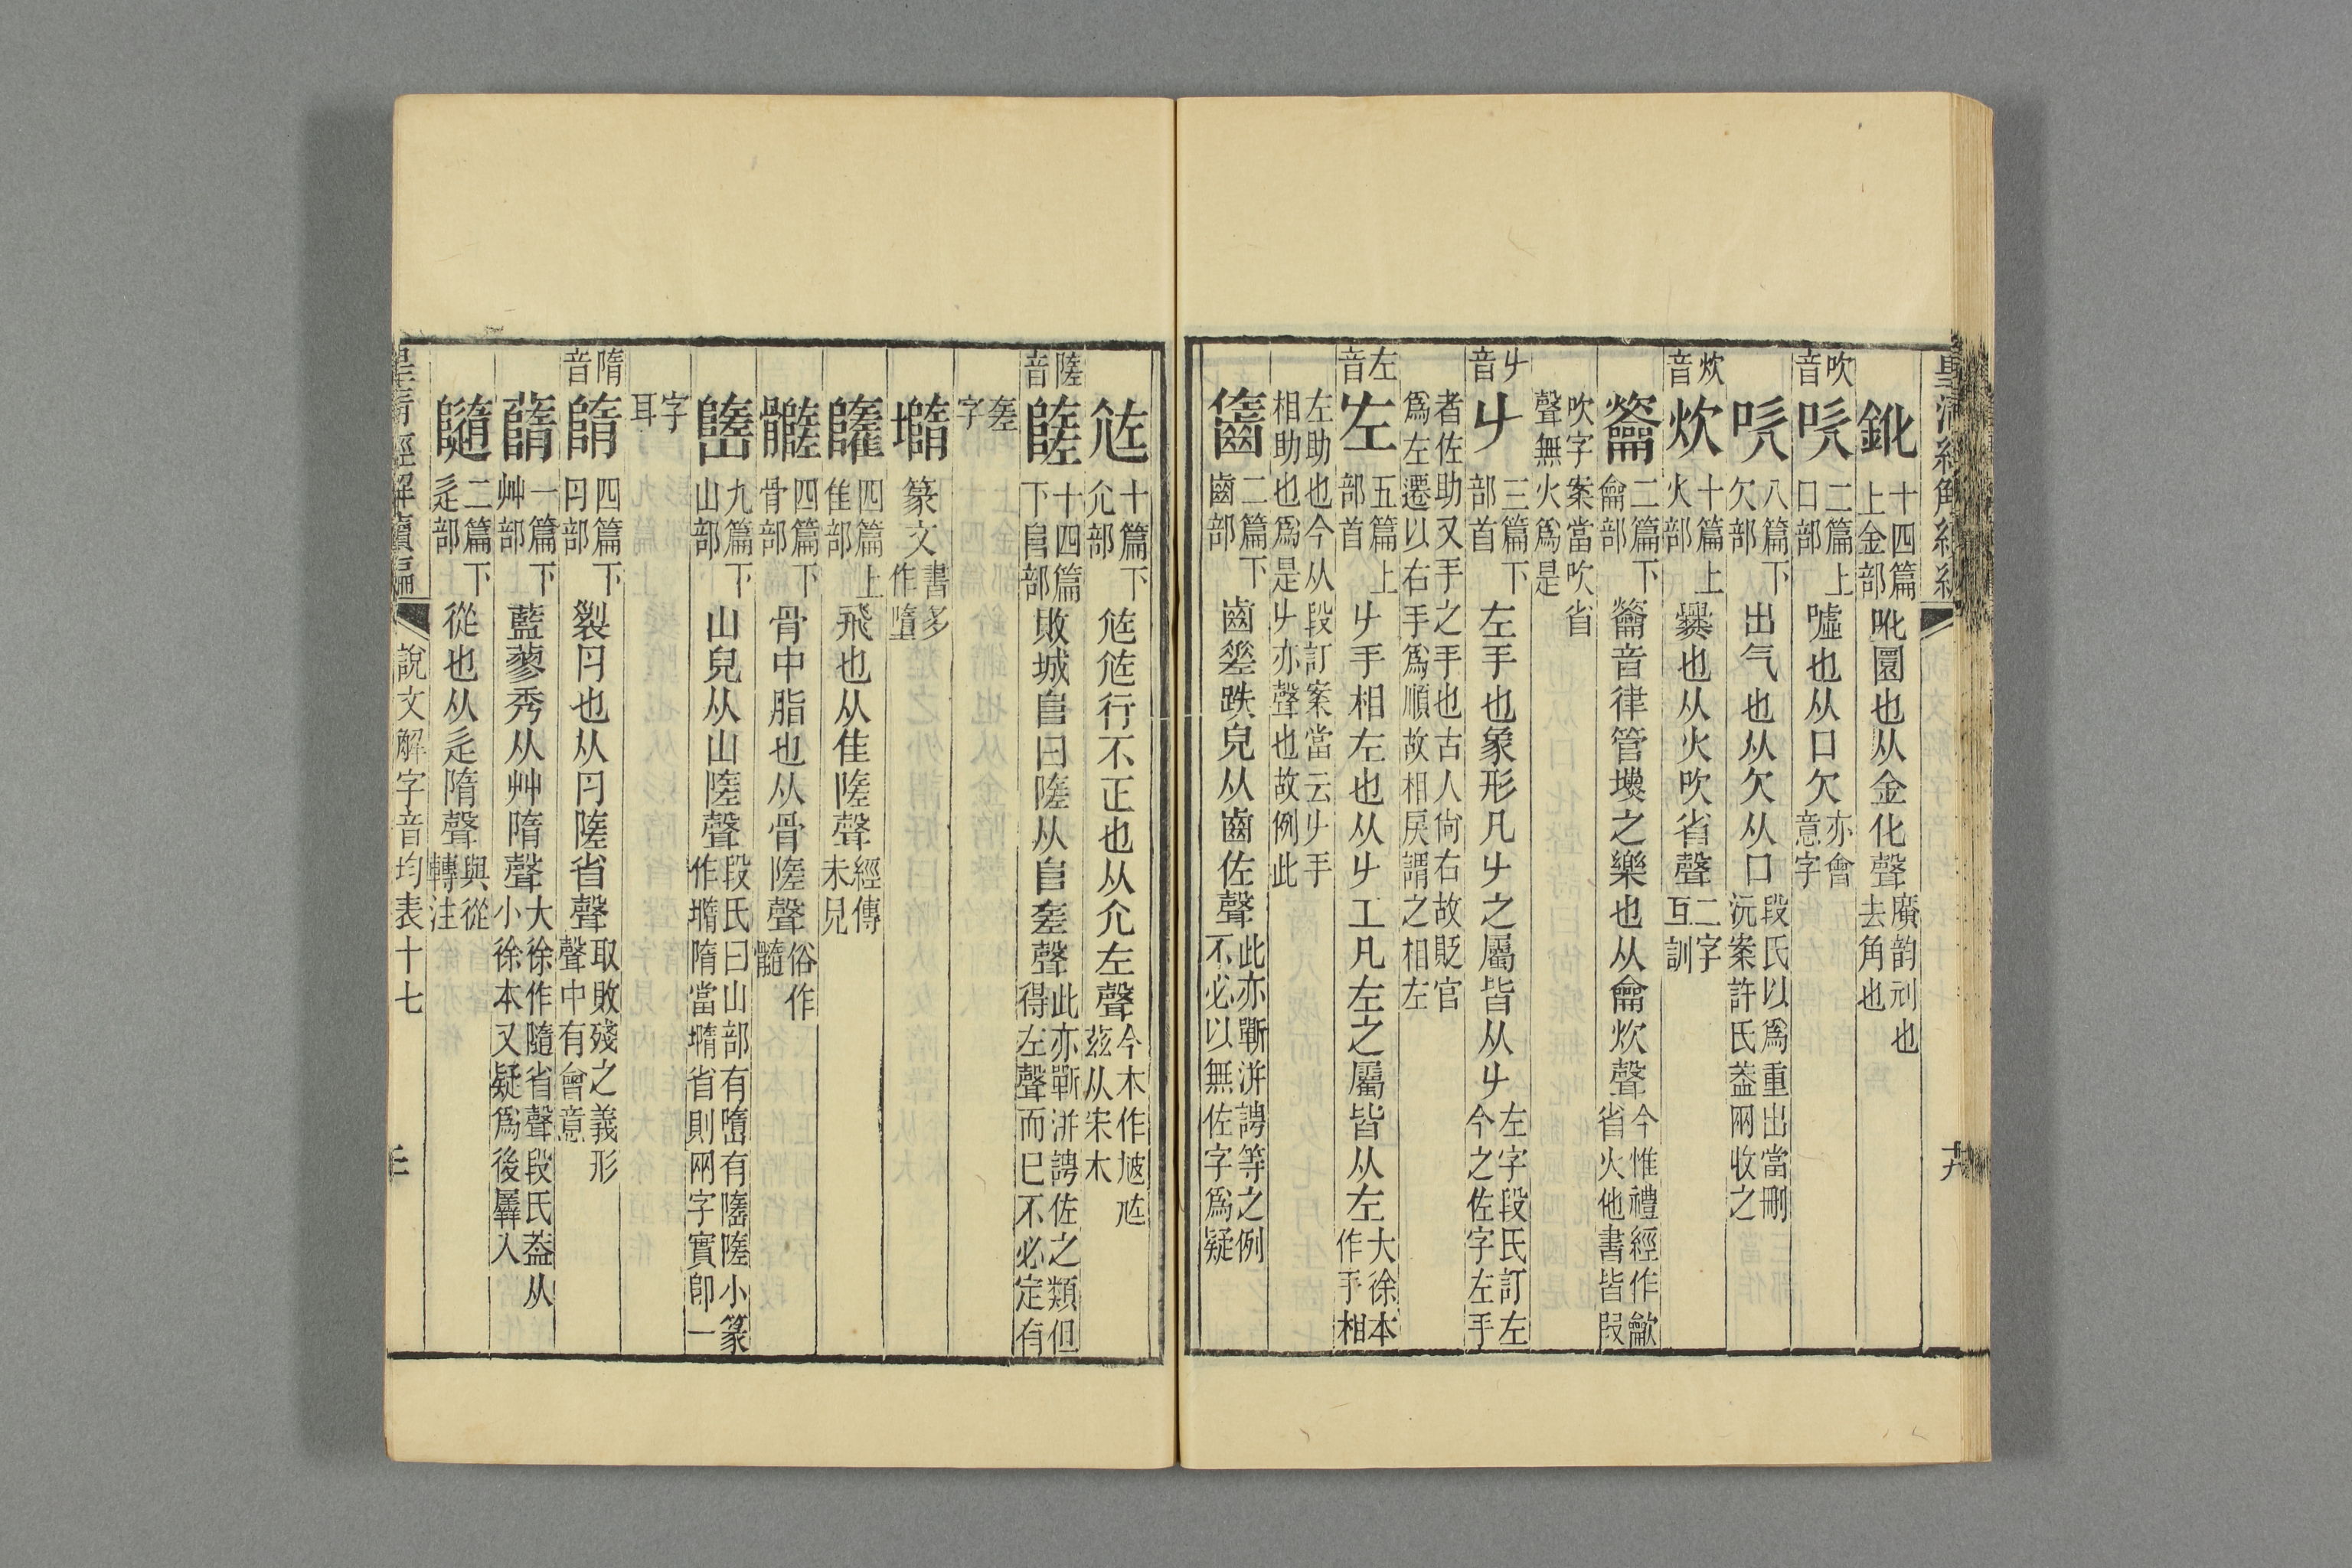 鈋 十四篇上金部 吪圜也从金化聲 廣韵刓也去角也
吹音 吹 二篇上口部 噓也从口欠 亦會意字
吹 八篇下欠部 出气也从欠从口 段氏以爲重出當刪沅案許氏葢兩收之
炊音 炊 十篇上火部 爨也从火吹省聲 二字互訓
䶴 二篇下龠部 籥音律管壎之樂也从龠炊聲 今惟禮經作龡省火他書皆叚
吹字案當吹省聲無火爲是
𠂇音 𠂇 三篇下部首 左手也象形凡𠂇之屬皆从𠂇 左字段氏訂左今之佐字左手
者佐助又手之手也古人尙右故貶官爲左遷以右手爲順故相戾謂之相左
左音 左 五篇上部首 𠂇手相左也从𠂇工凡左之屬皆从左 大徐本作手相
左助也今从段訂案當云𠂇手相助也爲是𠂇亦聲也故例此
二篇下齒部 齒𢀩跌皃从齒佐聲 此亦斷洴謗等之例不必以無佐字爲疑
𡯛 十篇下允部 𡯛𡯛行不正也从允左聲 今木作尯𡯛茲从宋木
隓音 隓 十四篇下𨸏部 敗城𨸏曰隓从𨸏㚍聲 此亦斷洴謗佐之類但得左聲而巳不必定有
㚍字
墮 篆文 書多作墮
四篇上隹部 飛也从隹隓聲 經傳未見
四篇下骨部 骨中脂也从骨隓聲 俗作髓
九篇下山部 山皃从山隓聲 段氏曰山部有嶞有隓小篆作墮隋當墮省則兩字實卽一
字耳
隋音 隋 四篇下冃部 裂冃也从冃隓省聲 取敗殘之義形聲中有會意
蓨 一篇下艸部 藍蓼秀从艸隋聲 大徐作隨省聲段氏葢从小徐本又疑爲後羼入
隨 二篇下辵部 從也从辵隋聲 與從轉注
皇淸經解續編 說文解字音均表十七